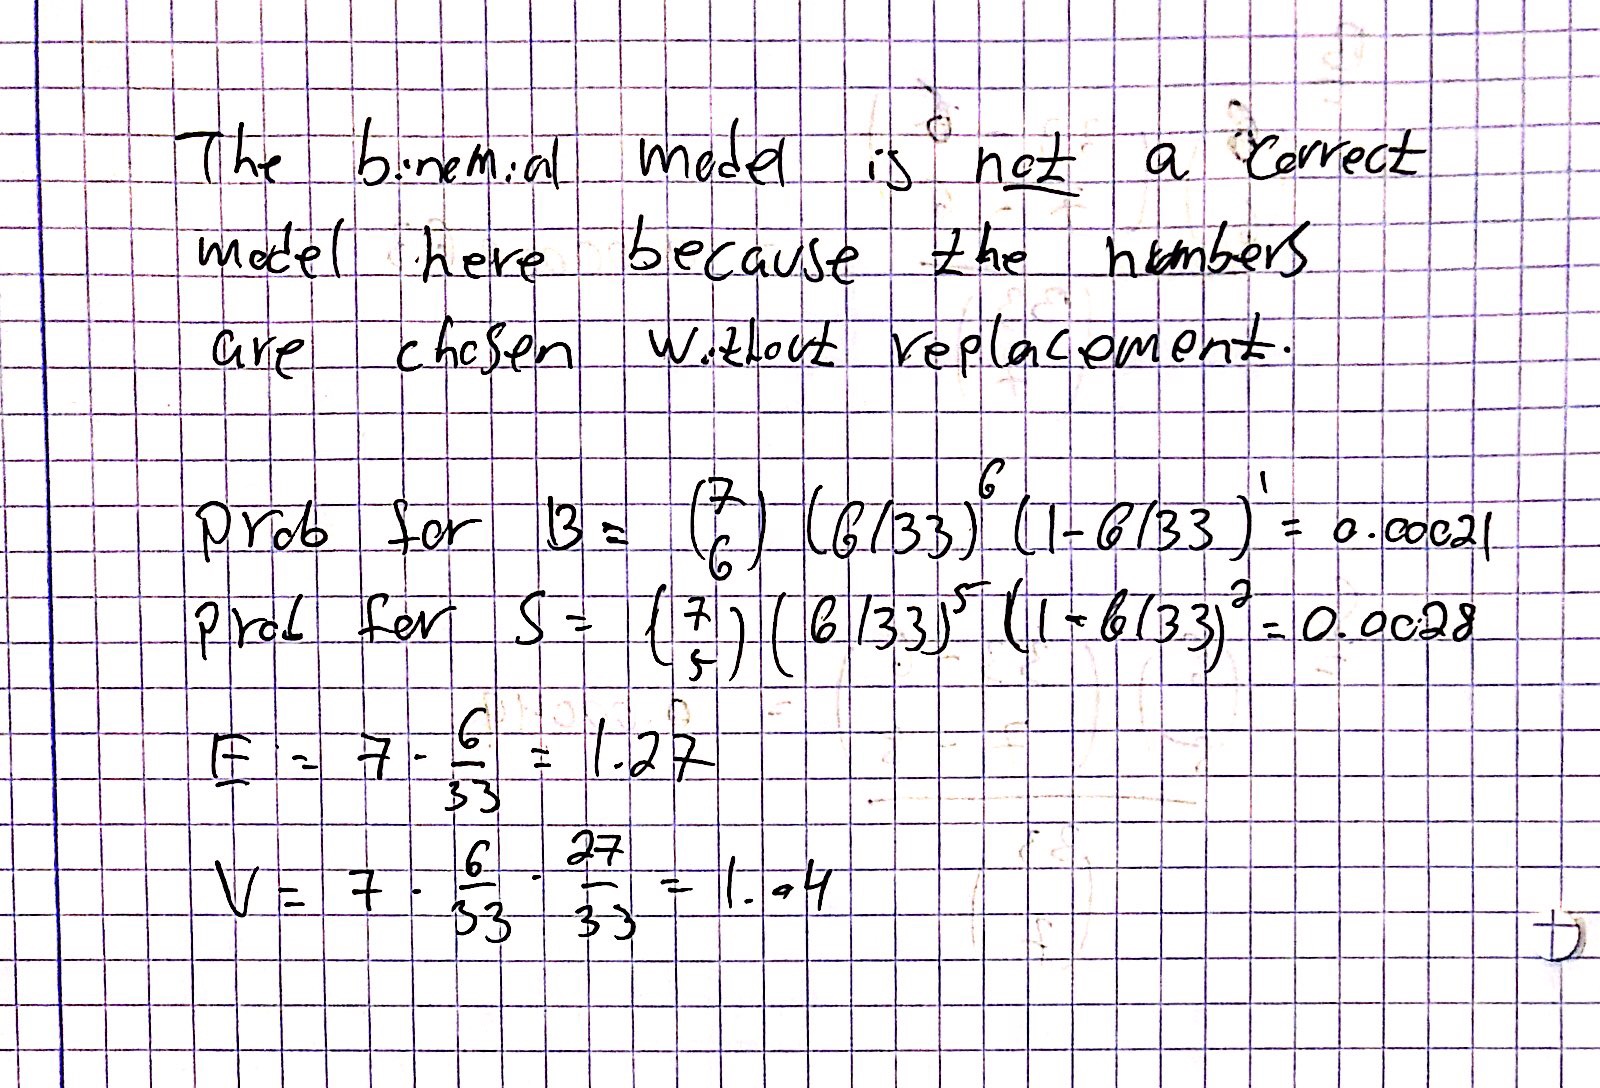 The binomial model is not a correct
model here because the numbers
are chosen without replacement.
Prob for B = (7 6) (6/33)^6 (1-6/33)^1 = 0.00021
Prob for S = (7 5) (6/33)^5 (1-6/33)^2 = 0.0028
E = 7 · 6/33 = 1.27
V = 7 · 6/33 · 27/33 = 1.04